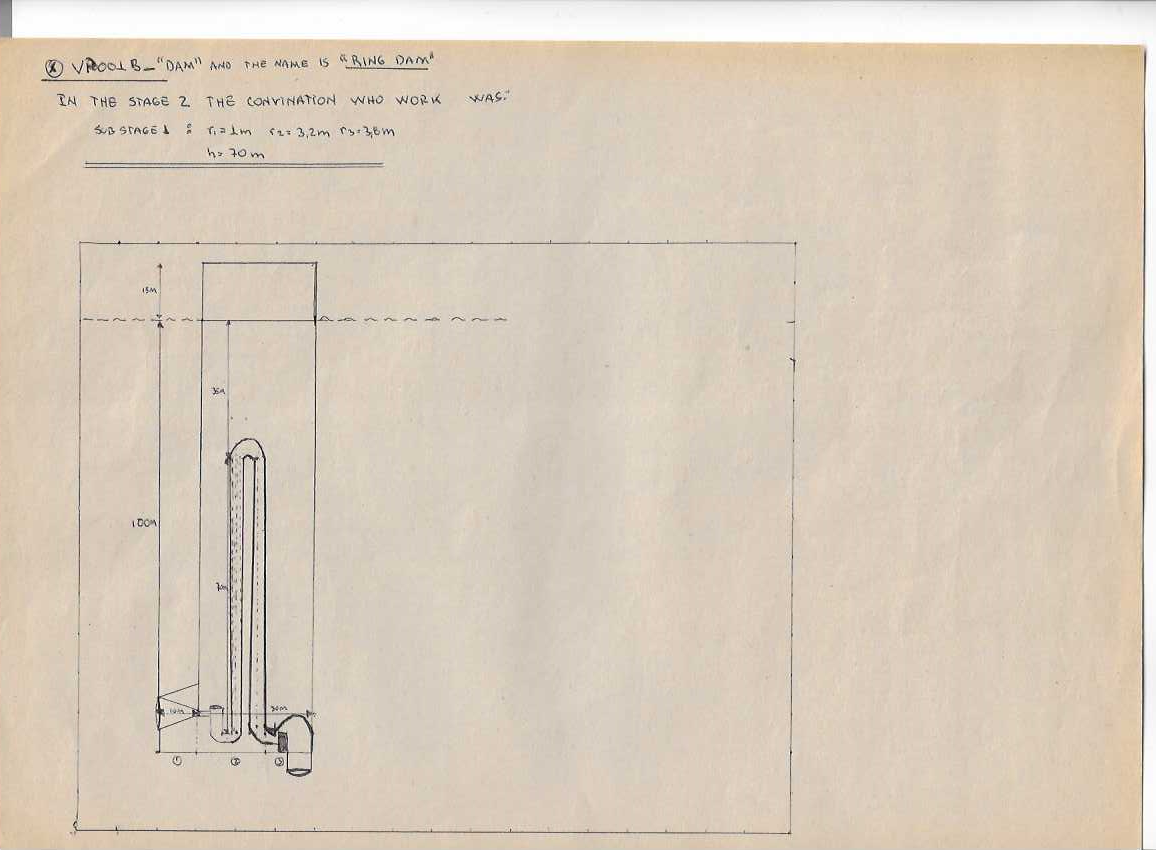 Ⓧ VR001B_ "DAM" AND THE NAME IS "RING DAM"
IN THE STAGE 2 THE CONVINATION WHO WORK WAS:
SUB STAGE 1 : r1=1m r2=3,2m r3=3,6m
h=70m
15M
35M
100M
70m
10M
30M
① ② ③